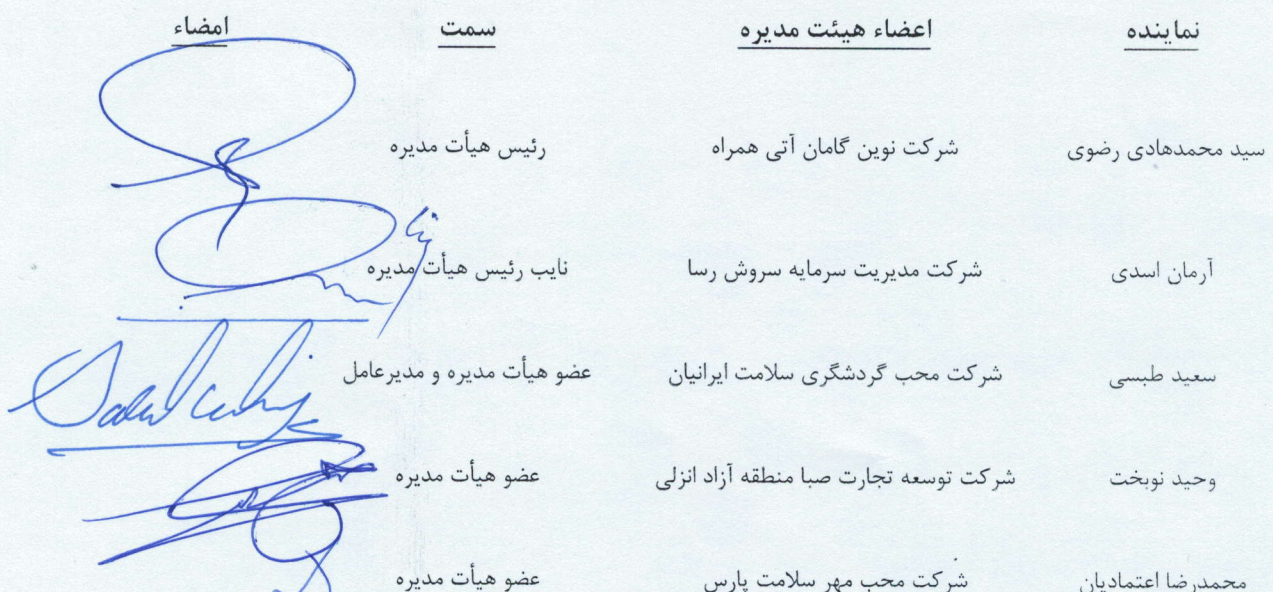 نماینده اعضاء هیئت مدیره سمت امضاء
سید محمدهادی رضوی شرکت نوین گامان آتی همراه رئیس هیأت مدیره
آرمان اسدی شرکت مدیریت سرمایه سروش رسا نایب رئیس هیأت مدیره
سعید طبسی شرکت محب گردشگری سلامت ایرانیان عضو هیأت مدیره و مدیرعامل
وحید نوبخت شرکت توسعه تجارت صبا منطقه آزاد انزلی عضو هیأت مدیره
محمدرضا اعتمادیان شرکت محب مهر سلامت پارس عضو هیأت مدیره